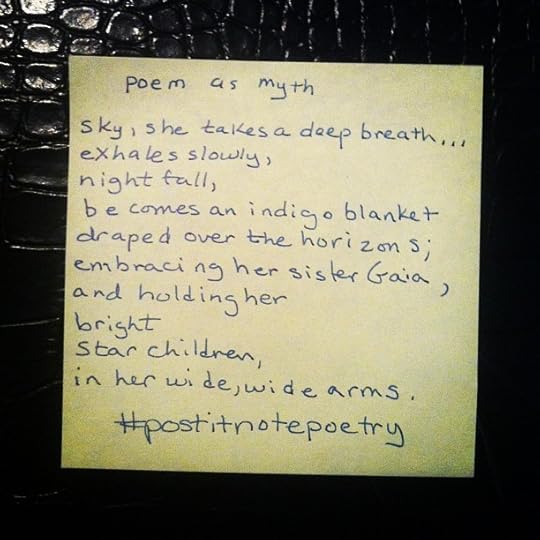 poem as myth
sky, she takes a deep breath...
exhales slowly,
night fall,
becomes an indigo blanket
draped over the horizons;
embracing her sister Gaia,
and holding her
bright
star children,
in her wide, wide arms.
#postitnotepoetry